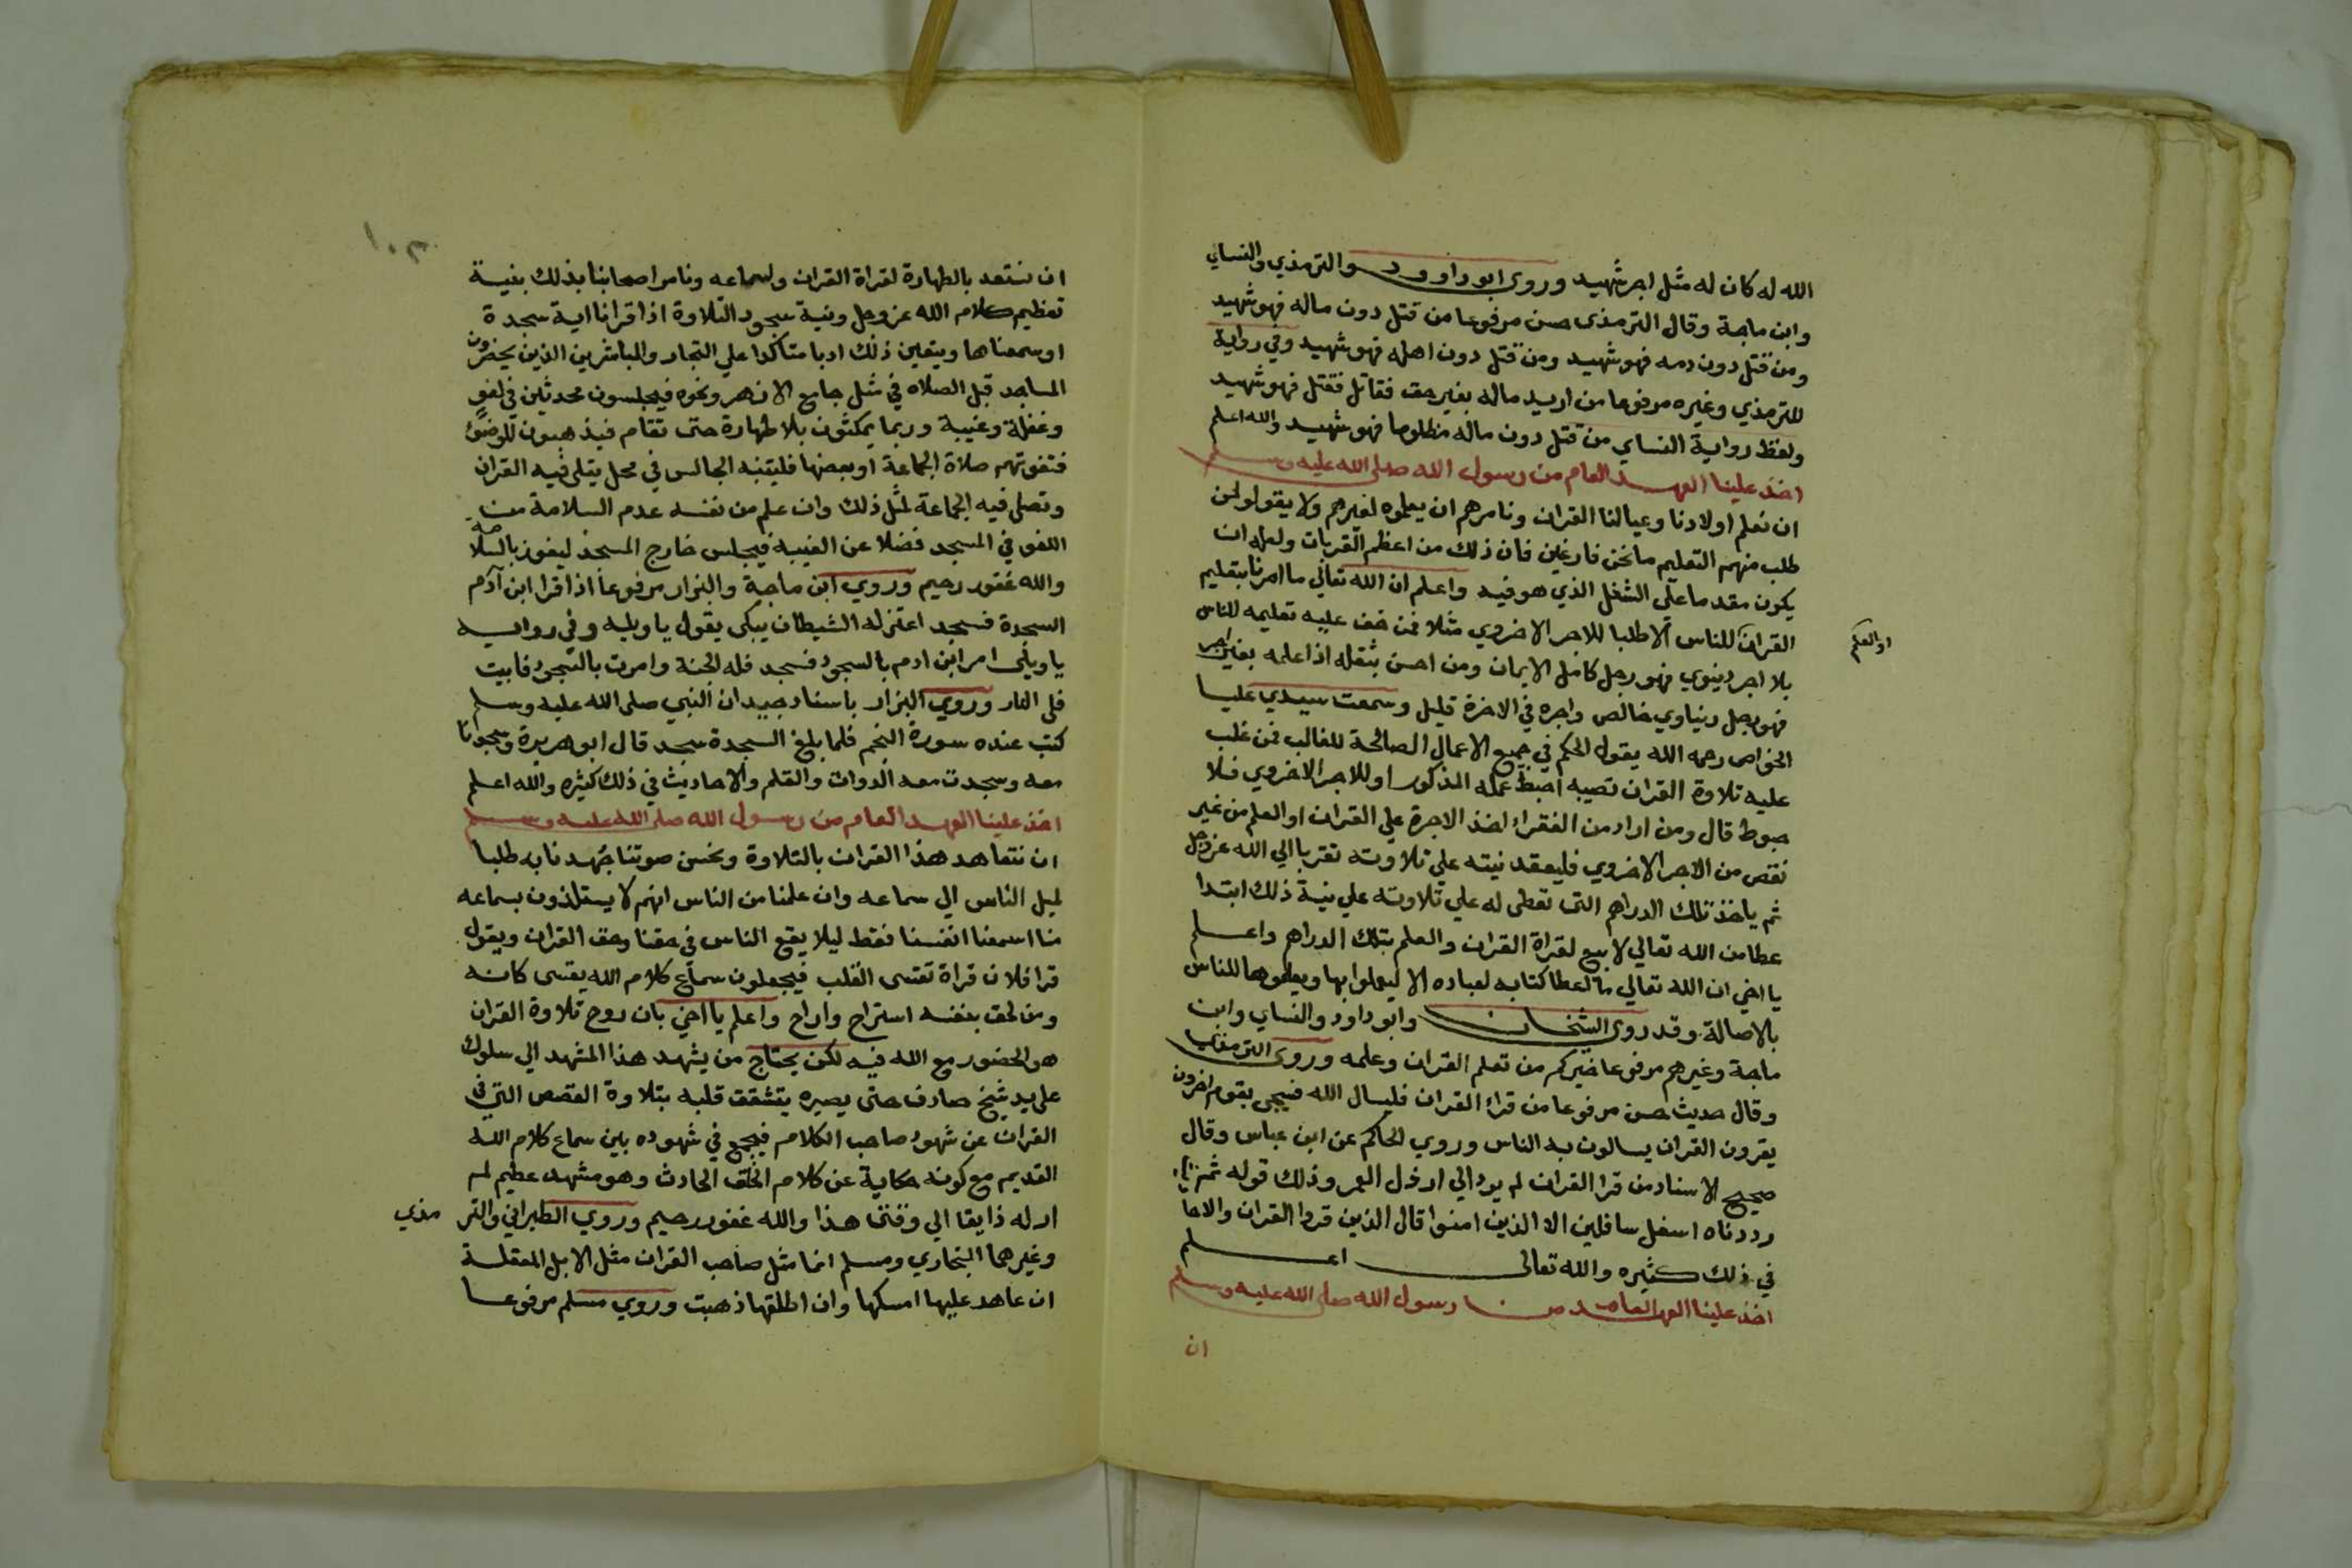 الله له كان له مثل اجر شهيد وروى ابو داوود والترمذي والنساي
وابن ماجة وقال الترمذي حسن مرفوعا من قتل دون ماله فهو شهيد
ومن قتل دون دمه فهو شهيد ومن قتل دون اهله فهو شهيد وفي رواية
للترمذي وغيره مرفوعا من اريد ماله بغير حق فقاتل فقتل فهو شهيد
ولفظ رواية النساي من قتل دون ماله مظلوما فهو شهيد والله اعلم
اخذ علينا العهد العام من رسول الله صلى الله عليه وسلم
ان نعلم اولادنا وعيالنا القران ونامرهم ان يعلموه لغيرهم ولا يقولو لمن
طلب منهم التعليم ما نحن فارغين فان ذلك من اعظم القربات ولعله ان
يكون مقدما على الشغل الذي هو فيه واعلم ان الله تعالى ما امرنا بتعليم
القران للناس الا طلبا للاجر الاخروي مثلا فمن خف عليه تعليمه للناس
او العلم
بلا اجر دينوي فهو رجل كامل الايمان ومن احس بثقله اذا علمه بغير اجر
فهو رجل دنياوي خالص واجره في الاخرة قليل وسمعت سيدي عليا
الخواص رحمه الله يقول الحكم في جميع الاعمال الصالحة للغالب فمن غلب
عليه تلاوة القران نصيبه احبط عمله المذكور او للاجر الاخروي فلا
حبوط قال ومن اراد من الفقراء اخذ الاجرة علي القران او العلم من غير
نقص من الاجر الاخروي فليعقد نيته علي تلاوته تقربا الي الله عز وجل
ثم ياخذ تلك الدراهم التي تعطى له علي تلاوته علي نية ذلك ابتدا
عطا من الله تعالي لا بيع لقراة القران والعلم بتلك الدراهم واعلم
يا اخي ان الله تعالي ما اعطا كتابه لعباده الا ليعملوا بها ويعلموها للناس
بالاصالة وقد روى الشيخان وابو داود والنساي وابن
ماجة وغيرهم مرفوعا خيركم من تعلم القران وعلمه وروى الترمذي
وقال حديث حسن مرفوعا من قراء القران فليسال الله فسيجى بقوم اخرون
يقرون القران يسالون به الناس وروي الحاكم عن ابن عباس وقال
صحيح الاسناد من قرا القران لم يرد الي ارذل العمر وذلك قوله ثم
رددناه اسفل سافلين الا الذين امنوا قال الذين قروا القران والاحا
في ذلك كثيره والله تعالى اعلم
اخذ علينا العهد العام من رسول الله صلى الله عليه وسلم
ان
١٠٣
ان نستعد بالطهارة لقراة القران ولسماعه ونامر اصحابنا بذلك بنية
تعظيم كلام الله عز وجل وبنية سجود التلاوة اذا قرانا اية سجدة
او سمعناها ويتعين ذلك ادبا متاكدا علي التجار والمباشرين الذين يحضرون
المساجد قبل الصلاه في مثل جامع الازهر ونحوه فيجلسون محدثين في لغو
وغفلة وغيبة وربما يمكثون بلا طهارة حتى تقام فيذهبون للوضوء
فتفوتهم صلاة الجماعة او بعضها فليتنبه الجالس في محل يتلى فيه القران
وتصلى فيه الجماعة لمثل ذلك وان علم من نفسه عدم السلامة من
اللغو في المسجد فضلا عن الغيبة فيجلس خارج المسجد ليفوز بالسلامة
والله غفور رحيم وروي ابن ماجة والبزار مرفوعا اذا قرا ابن آدم
السجدة فسجد اعتزله الشيطان يبكى يقول يا ويليه وفي رواية
يا ويلى امر ابن ادم بالسجود فسجد فله الجنة وامرت بالسجود فابيت
فلى النار وروي البزار باسناد جيد ان النبي صلى الله عليه وسلم
كتب عنده سورة النجم فلما بلغ السجدة سجد قال ابو هريرة وسجدنا
معه وسجدت معه الدوات والقلم والاحاديث في ذلك كثيره والله اعلم
اخذ علينا العهد العام من رسول الله صلى الله عليه وسلم
ان نتعاهد هذا القران بالتلاوة ونحسن صوتنا جهدنا به طلبا
لميل الناس الي سماعه وان علمنا من الناس انهم لا يستلذون بسماعه
منا اسمعنا انفسنا فقط ليلا يقع الناس في حقنا وحق القران ويقول
قرا فلان قراة تقسى القلب فيجعلون سماع كلام الله يقسى كانه
ومن لحق بنفسه استراح واراح واعلم يا اخي بان روح تلاوة القران
هو الحضور مع الله فيه لكن يحتاج من يشهد هذا المشهد الي سلوك
على يد شيخ صادف حتى يصيره يتشقت قلبه بتلاوة القصص التي في
القران عن شهود صاحب الكلام فيجمع في شهوده بين سماع كلام الله
القديم مع كونه حكاية عن كلام الخلق الحادث وهو مشهد عظيم لم
ار له ذايقا الي وقتنا هذا والله غفور رحيم وروي الطبراني والتر مذي
وغيرهما البخاري ومسلم انما مثل صاحب القران مثل الابل المعقلة
ان عاهد عليها امسكها وان اطلقها ذهبت وروي مسلم مرفوعا